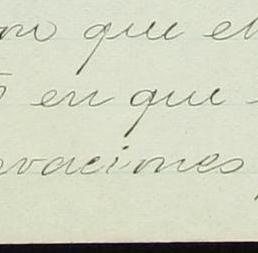 que el
en que
vaciones